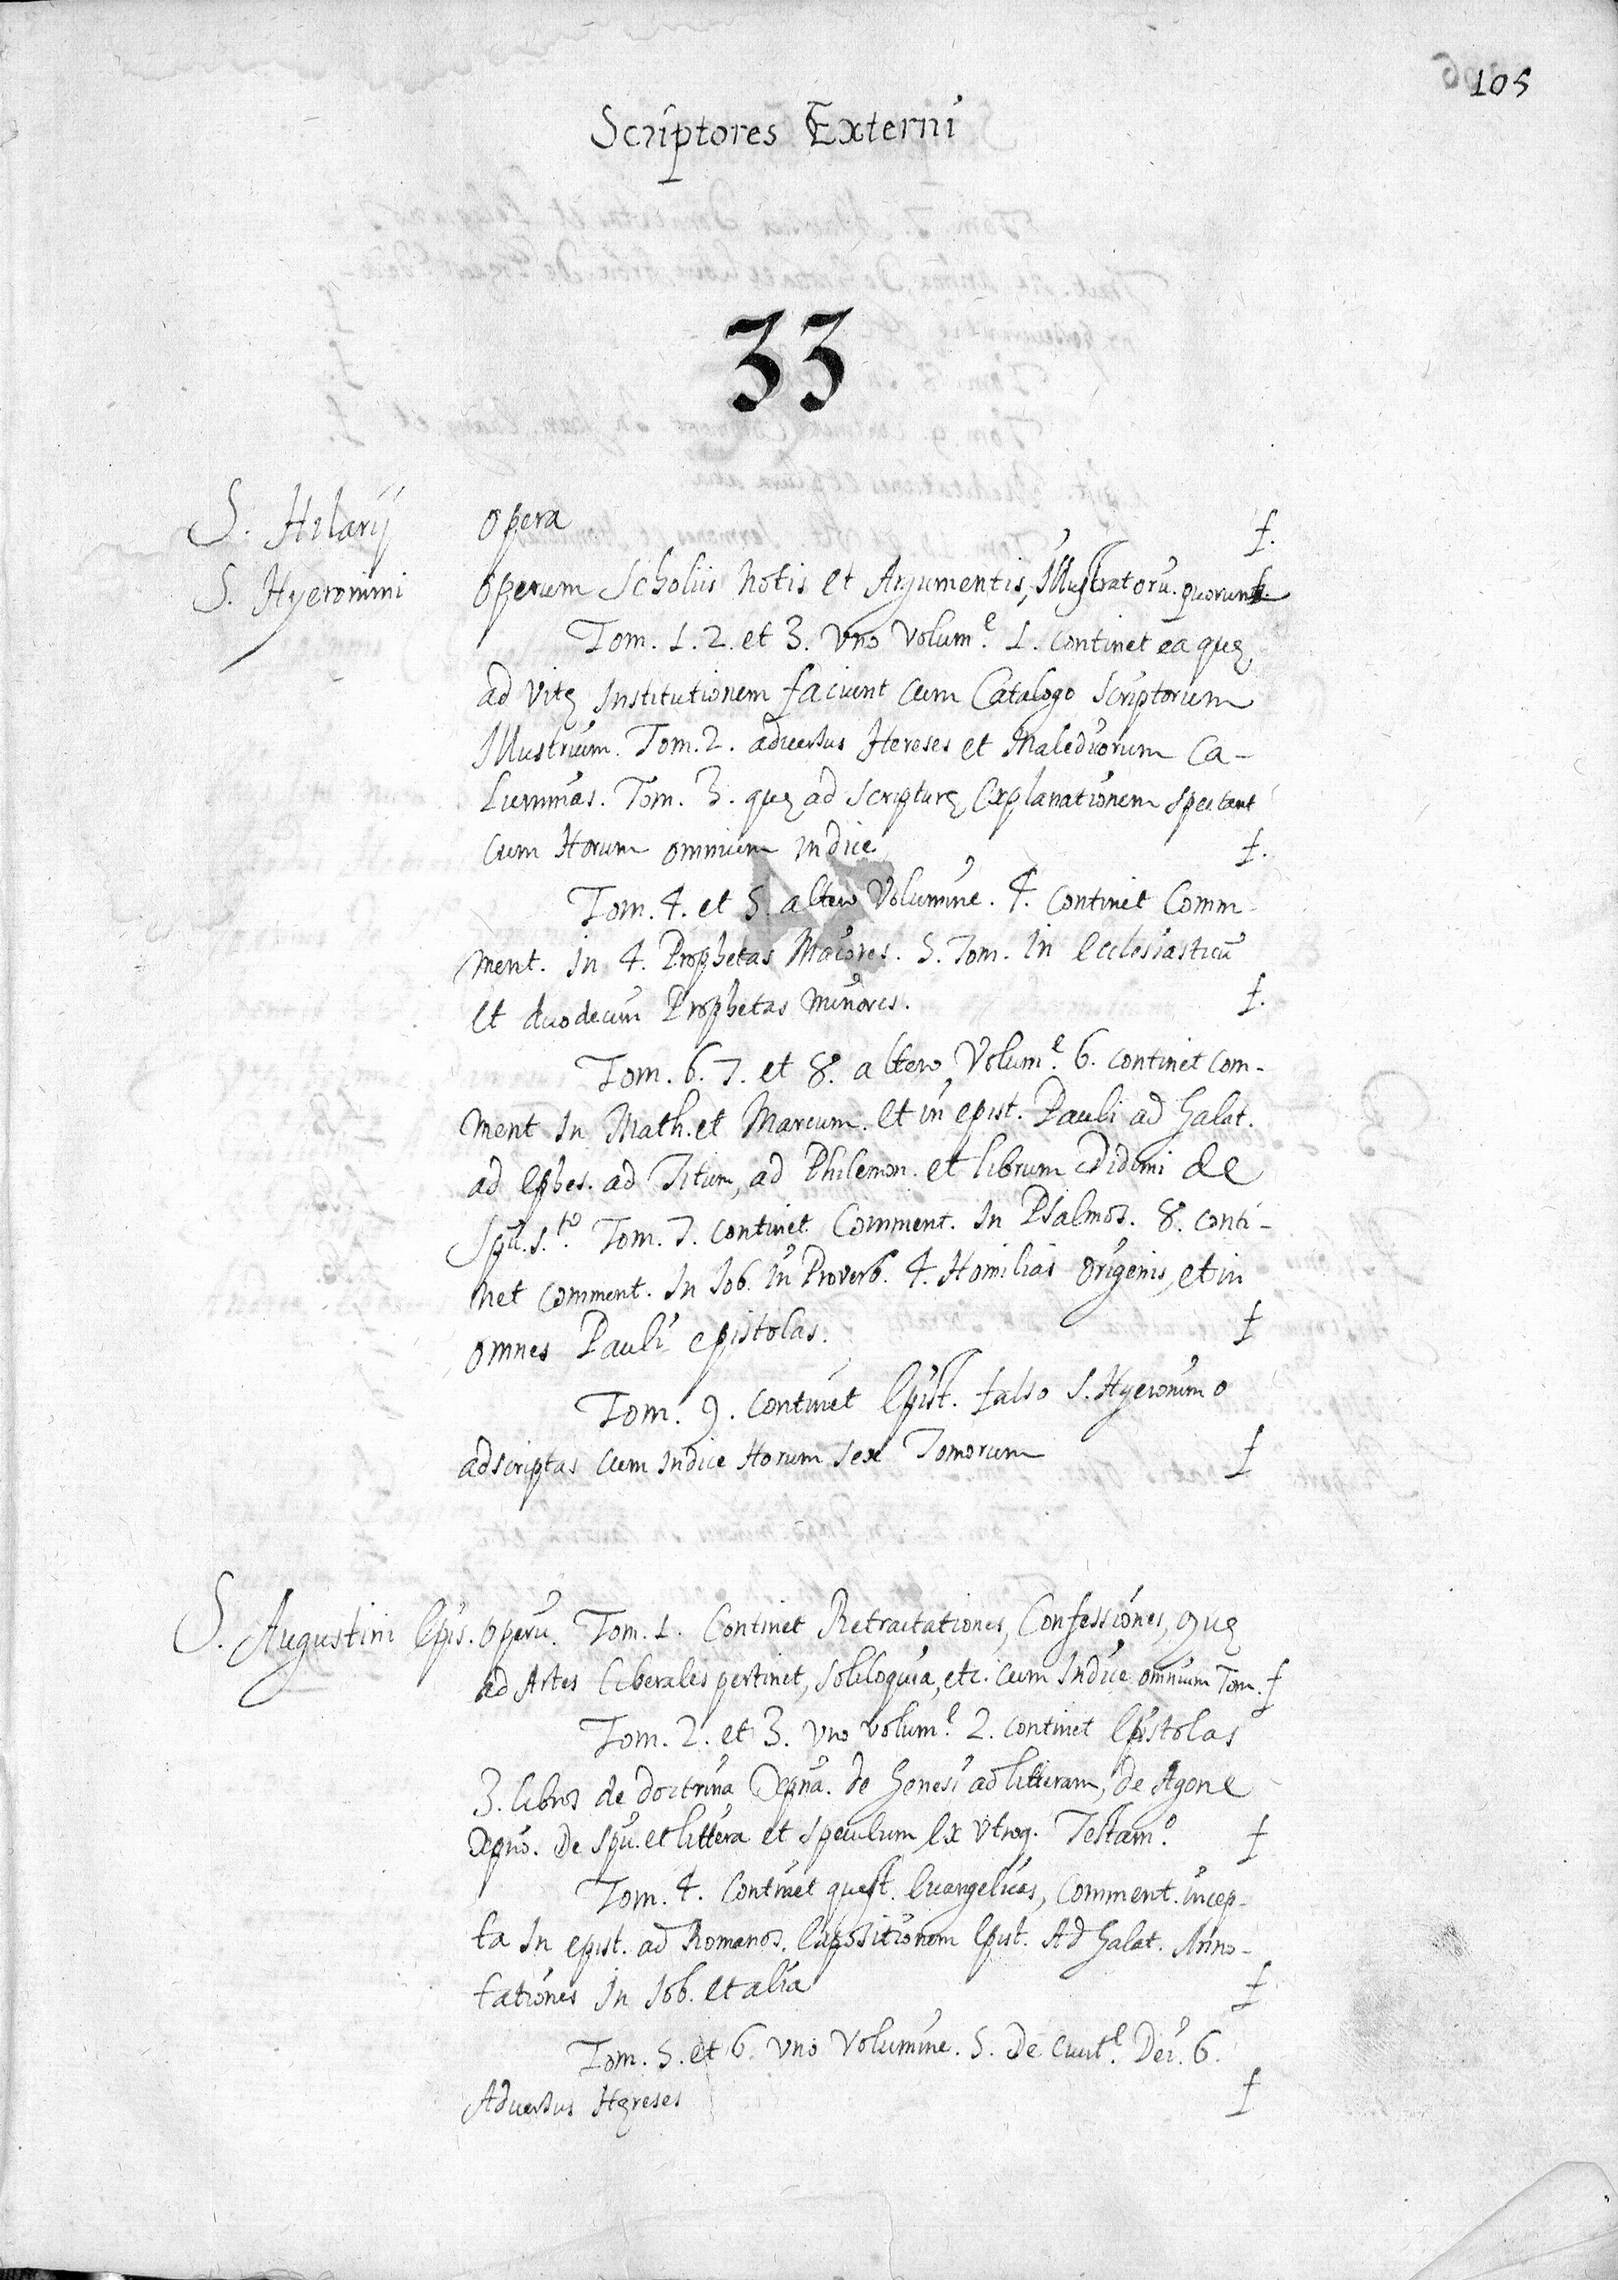 105
Scriptores Externi
33
S. Hilarij opera f.
S. Hyeronimi operum Scholiis notis et Argumentis, Illustratoru. quorum f.
Tom. 1. 2. et 3. vno Volum.e 1. continet ea quę
ad vitę Institutionem faciunt cum Catalogo scriptorum
Illustrium. Tom. 2. aduersus Hereses et Maledicorum Ca-
lumnias. Tom. 3. quę ad scripturę explanationem spectant
cum Horum omnium indice f.
Tom. 4. et 5. altero Volumine. 4. continet Comm-
ment. in 4. Prophetas Maiores. 5. Tom. in Ecclesiasticū
et duodecim Prophetas minores. f.
Tom. 6. 7. et 8. altero Volum.e 6. continet com-
ment in Math. et Marcum. et in epist. Pauli ad Galat.
ad ephes. ad Titum, ad Philemon. et librum Didimi de
Spū. s.to Tom. 7. continet Comment. in Psalmos. 8. conti-
net comment. in Iob. in Proverb. 4. Homilias origenis, et in
omnes Pauli epistolas. f
Tom. 9. continet Epist. falso S. Hyeronimo
adscriptas cum indice Horum sex Tomorum f
S. Augustini Epis. operū. Tom. 1. Continet Retractationes, Confessiones, quę
ad Artes liberales pertinet, soliloquia, etc. cum indice omnium Tom. f
Tom. 2. et 3. vno volum.e 2. continet Epistolas
3. libros de doctrina Xpna. de Genesi ad litteram, de Agone
Xpno. De spu. et littera et speculum ex vtroq. Testam.o f
Tom. 4. continet quest. Euangelicas, comment. incep-
ta in epist. ad Romanos. Expositionem Epist. Ad Galat. Anno-
tationes in Iob. et alia f
Tom. 5. et 6. vno Volumine. 5. De Ciuit.e Dei. 6.
Aduersus Hęreses f